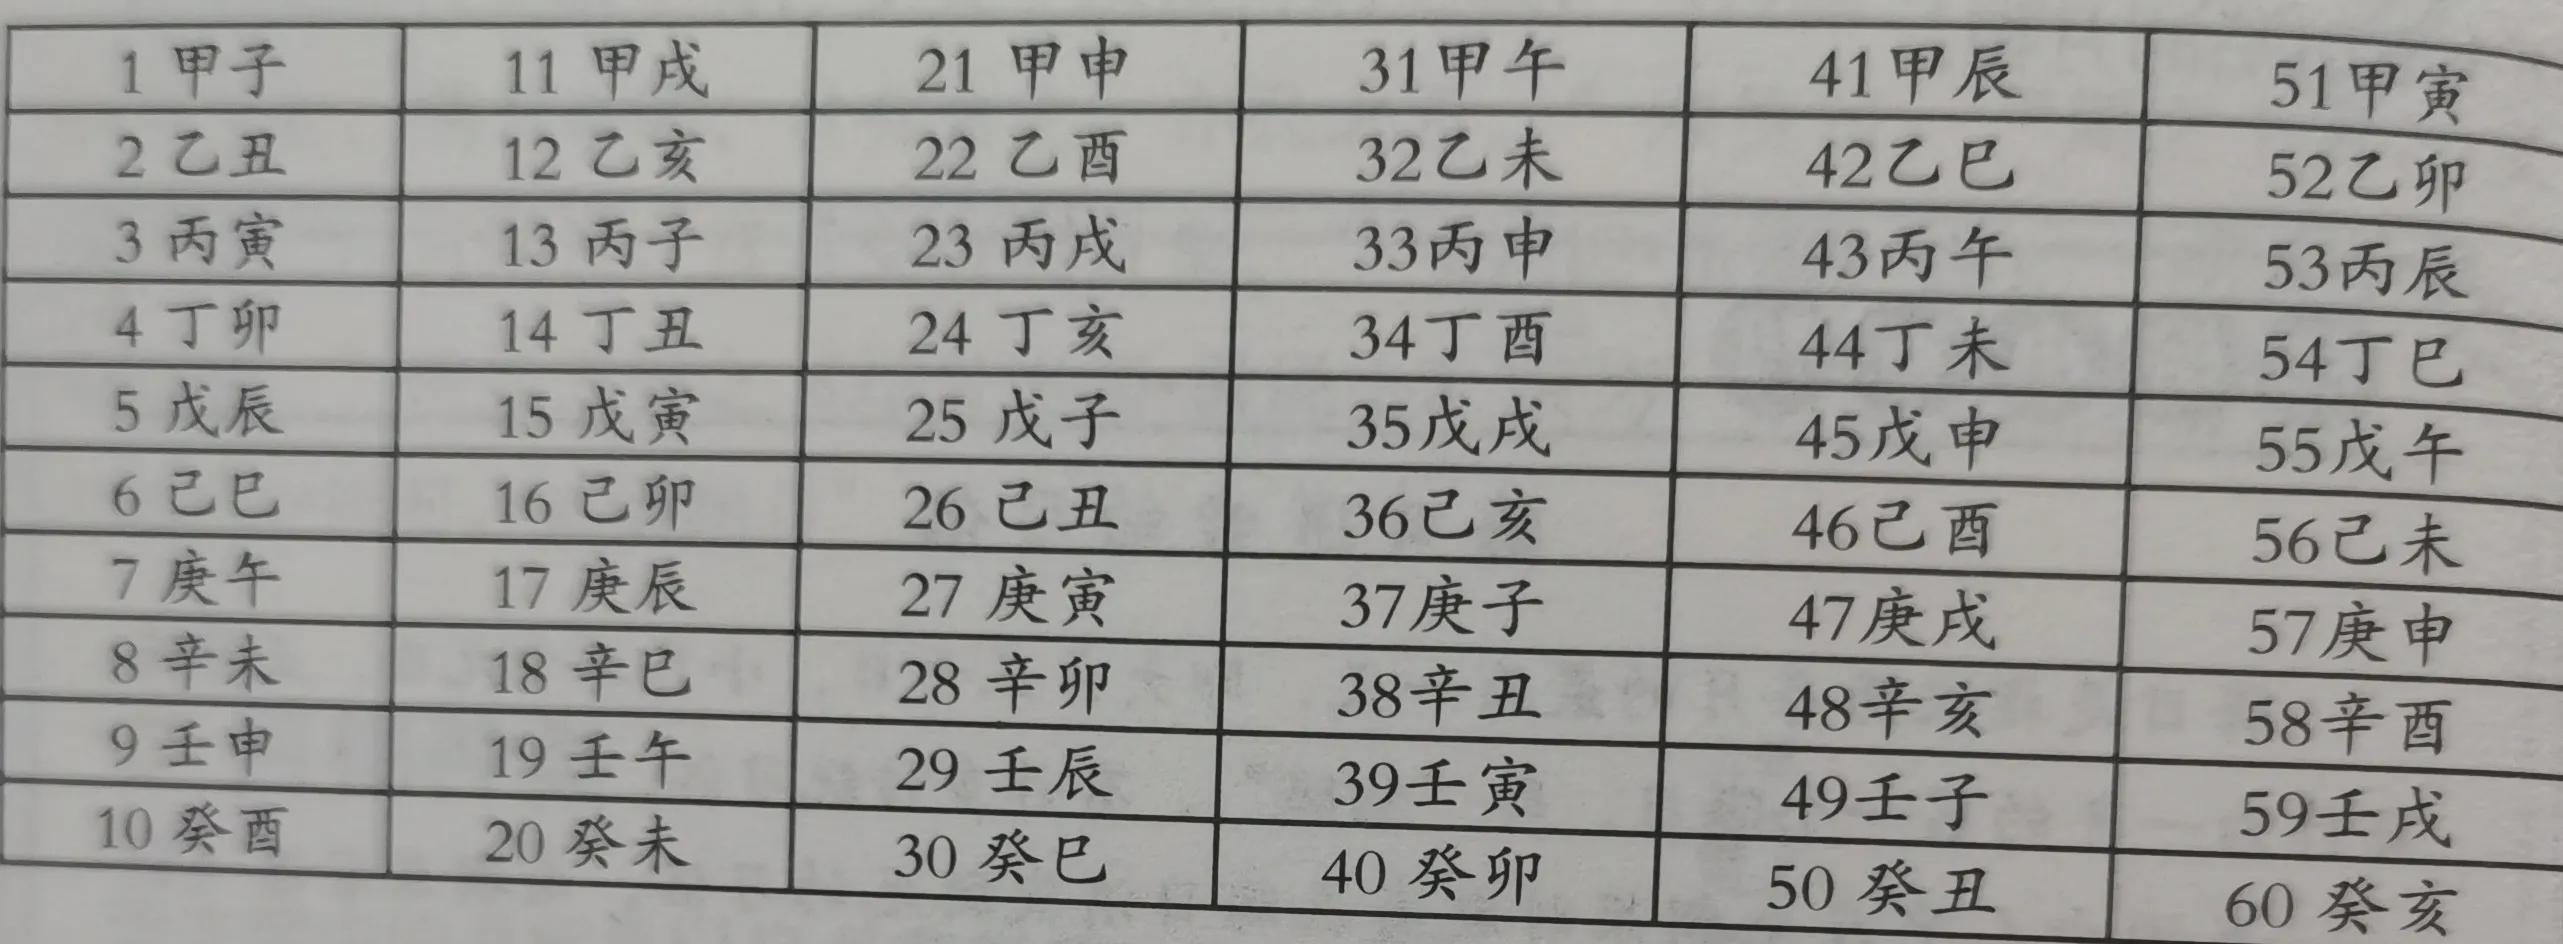 1 甲子 11 甲戌 21 甲申 31甲午 41甲辰 51甲寅
2 乙丑 12 乙亥 22 乙酉 32乙未 42乙巳 52乙卯
3 丙寅 13 丙子 23 丙戌 33丙申 43丙午 53丙辰
4 丁卯 14 丁丑 24 丁亥 34丁酉 44丁未 54丁巳
5 戊辰 15 戊寅 25 戊子 35戊戌 45戊申 55戊午
6 己巳 16 己卯 26 己丑 36己亥 46己酉 56己未
7 庚午 17 庚辰 27 庚寅 37庚子 47庚戌 57庚申
8 辛未 18 辛巳 28 辛卯 38辛丑 48辛亥 58辛酉
9 壬申 19 壬午 29 壬辰 39壬寅 49壬子 59壬戌
10 癸酉 20 癸未 30 癸巳 40 癸卯 50 癸丑 60 癸亥